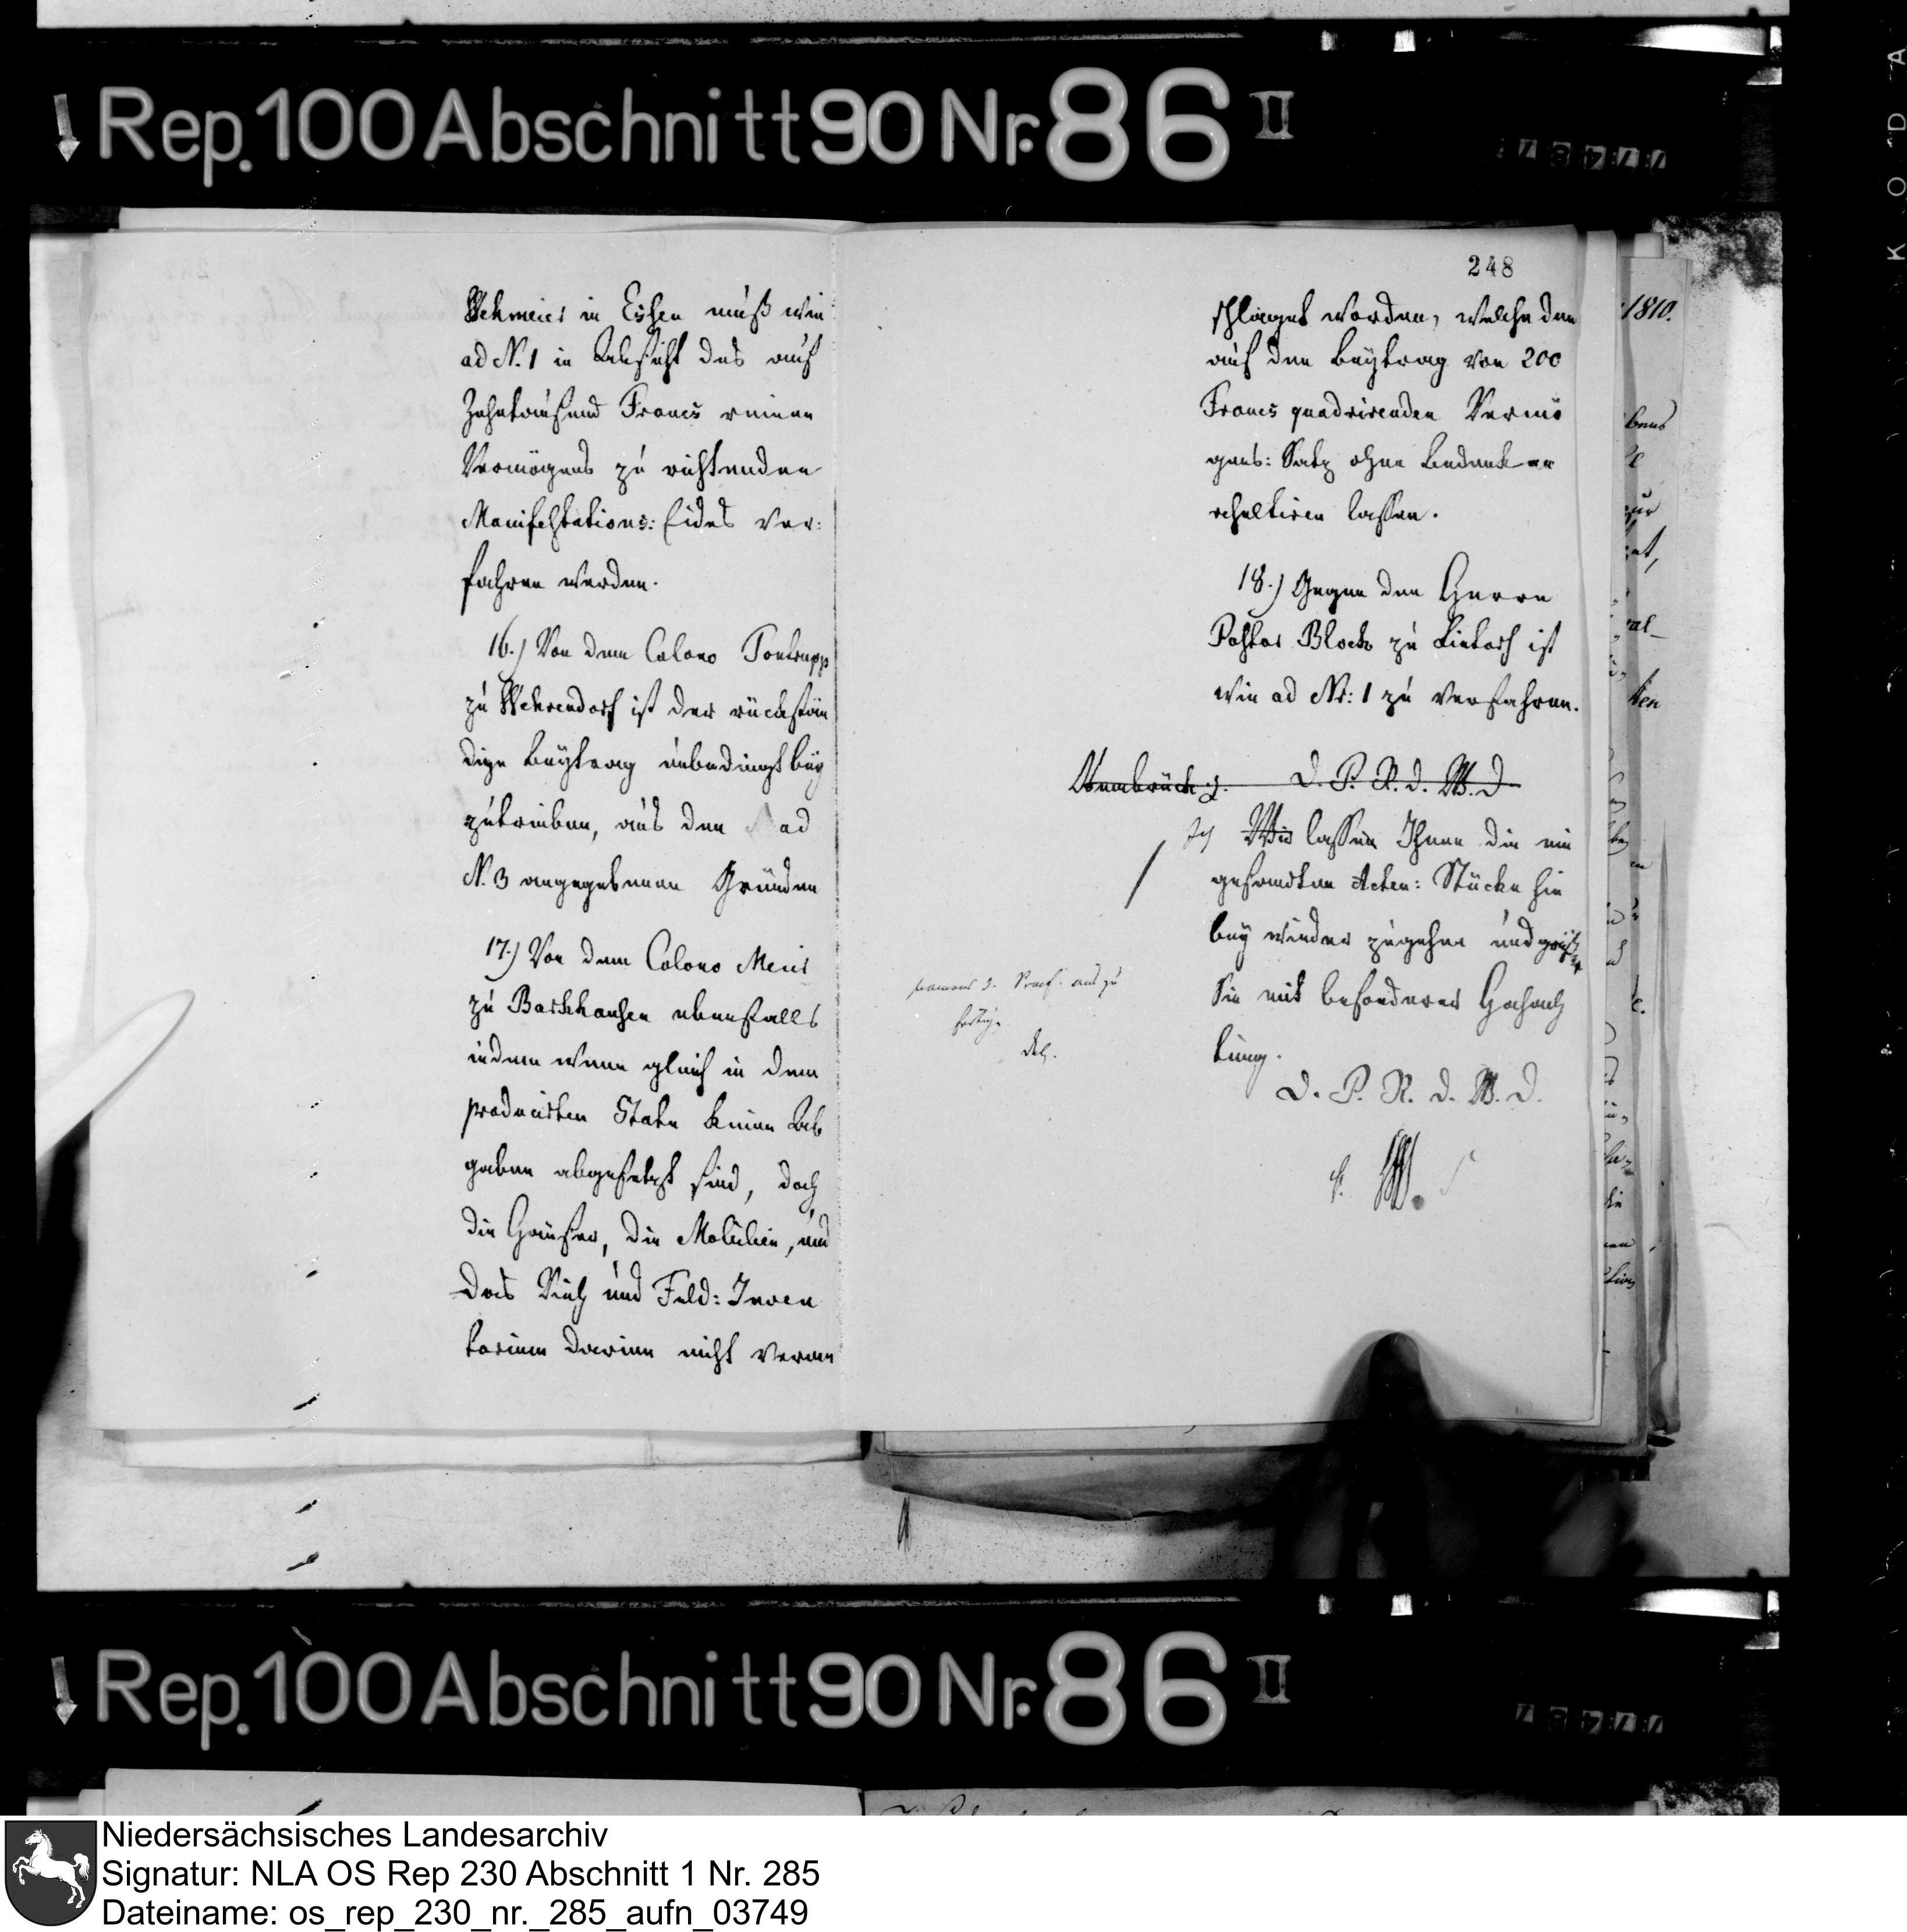 Rep. 100 Abschnitt 90 Nr. 86 II
Wehmeier in Essen muß wie
ad N. 1 in Absicht des auf
Zehntausend Francs reinen
Vermögens zu richtenden
Manifestations: Eides ver:
fahren werden.
16.) Von dem Colono Pontrupp
zu Wehrendorf ist der rückstän
dige Beytrag unbedingt bey
zutreiben, aus den ad
N. 3 angegebenen Gründen
17.) Von dem Colono Meier
zu Barkhausen ebenfalls
indem wenn gleich in dem
producirten State keine Ab
gaben abgesetzt sind, doch
die Häuser, die Mobilien, und
das Vieh und Feld: Inven
tarium darinn nicht veran
248
schlaget worden, welche den
auf den Beytrag von 200
Francs quadrirenden Vermö
gens: Satz ohne Bedenken
resultiren lassen.
18.) Gegen den Herrn
Pastor Block zu Lintorf ist
wie ad Nr: 1 zu verfahren.
Osnabrück d. D. P. R. d. W. D
Ich Wir lassen Ihnen die ein
gesandten Acten: Stücke hie
bey wieder zugehen und grüße
Sie mit besonderer Hochach
tung.
D. P. R. d. W. D.
namens d. Praef. aus zu
fertig.
1810.
Rep. 100 Abschnitt 90 Nr. 86 II
Niedersächsisches Landesarchiv
Signatur: NLA OS Rep 230 Abschnitt 1 Nr. 285
Dateiname: os_rep_230_nr._285_aufn_03749